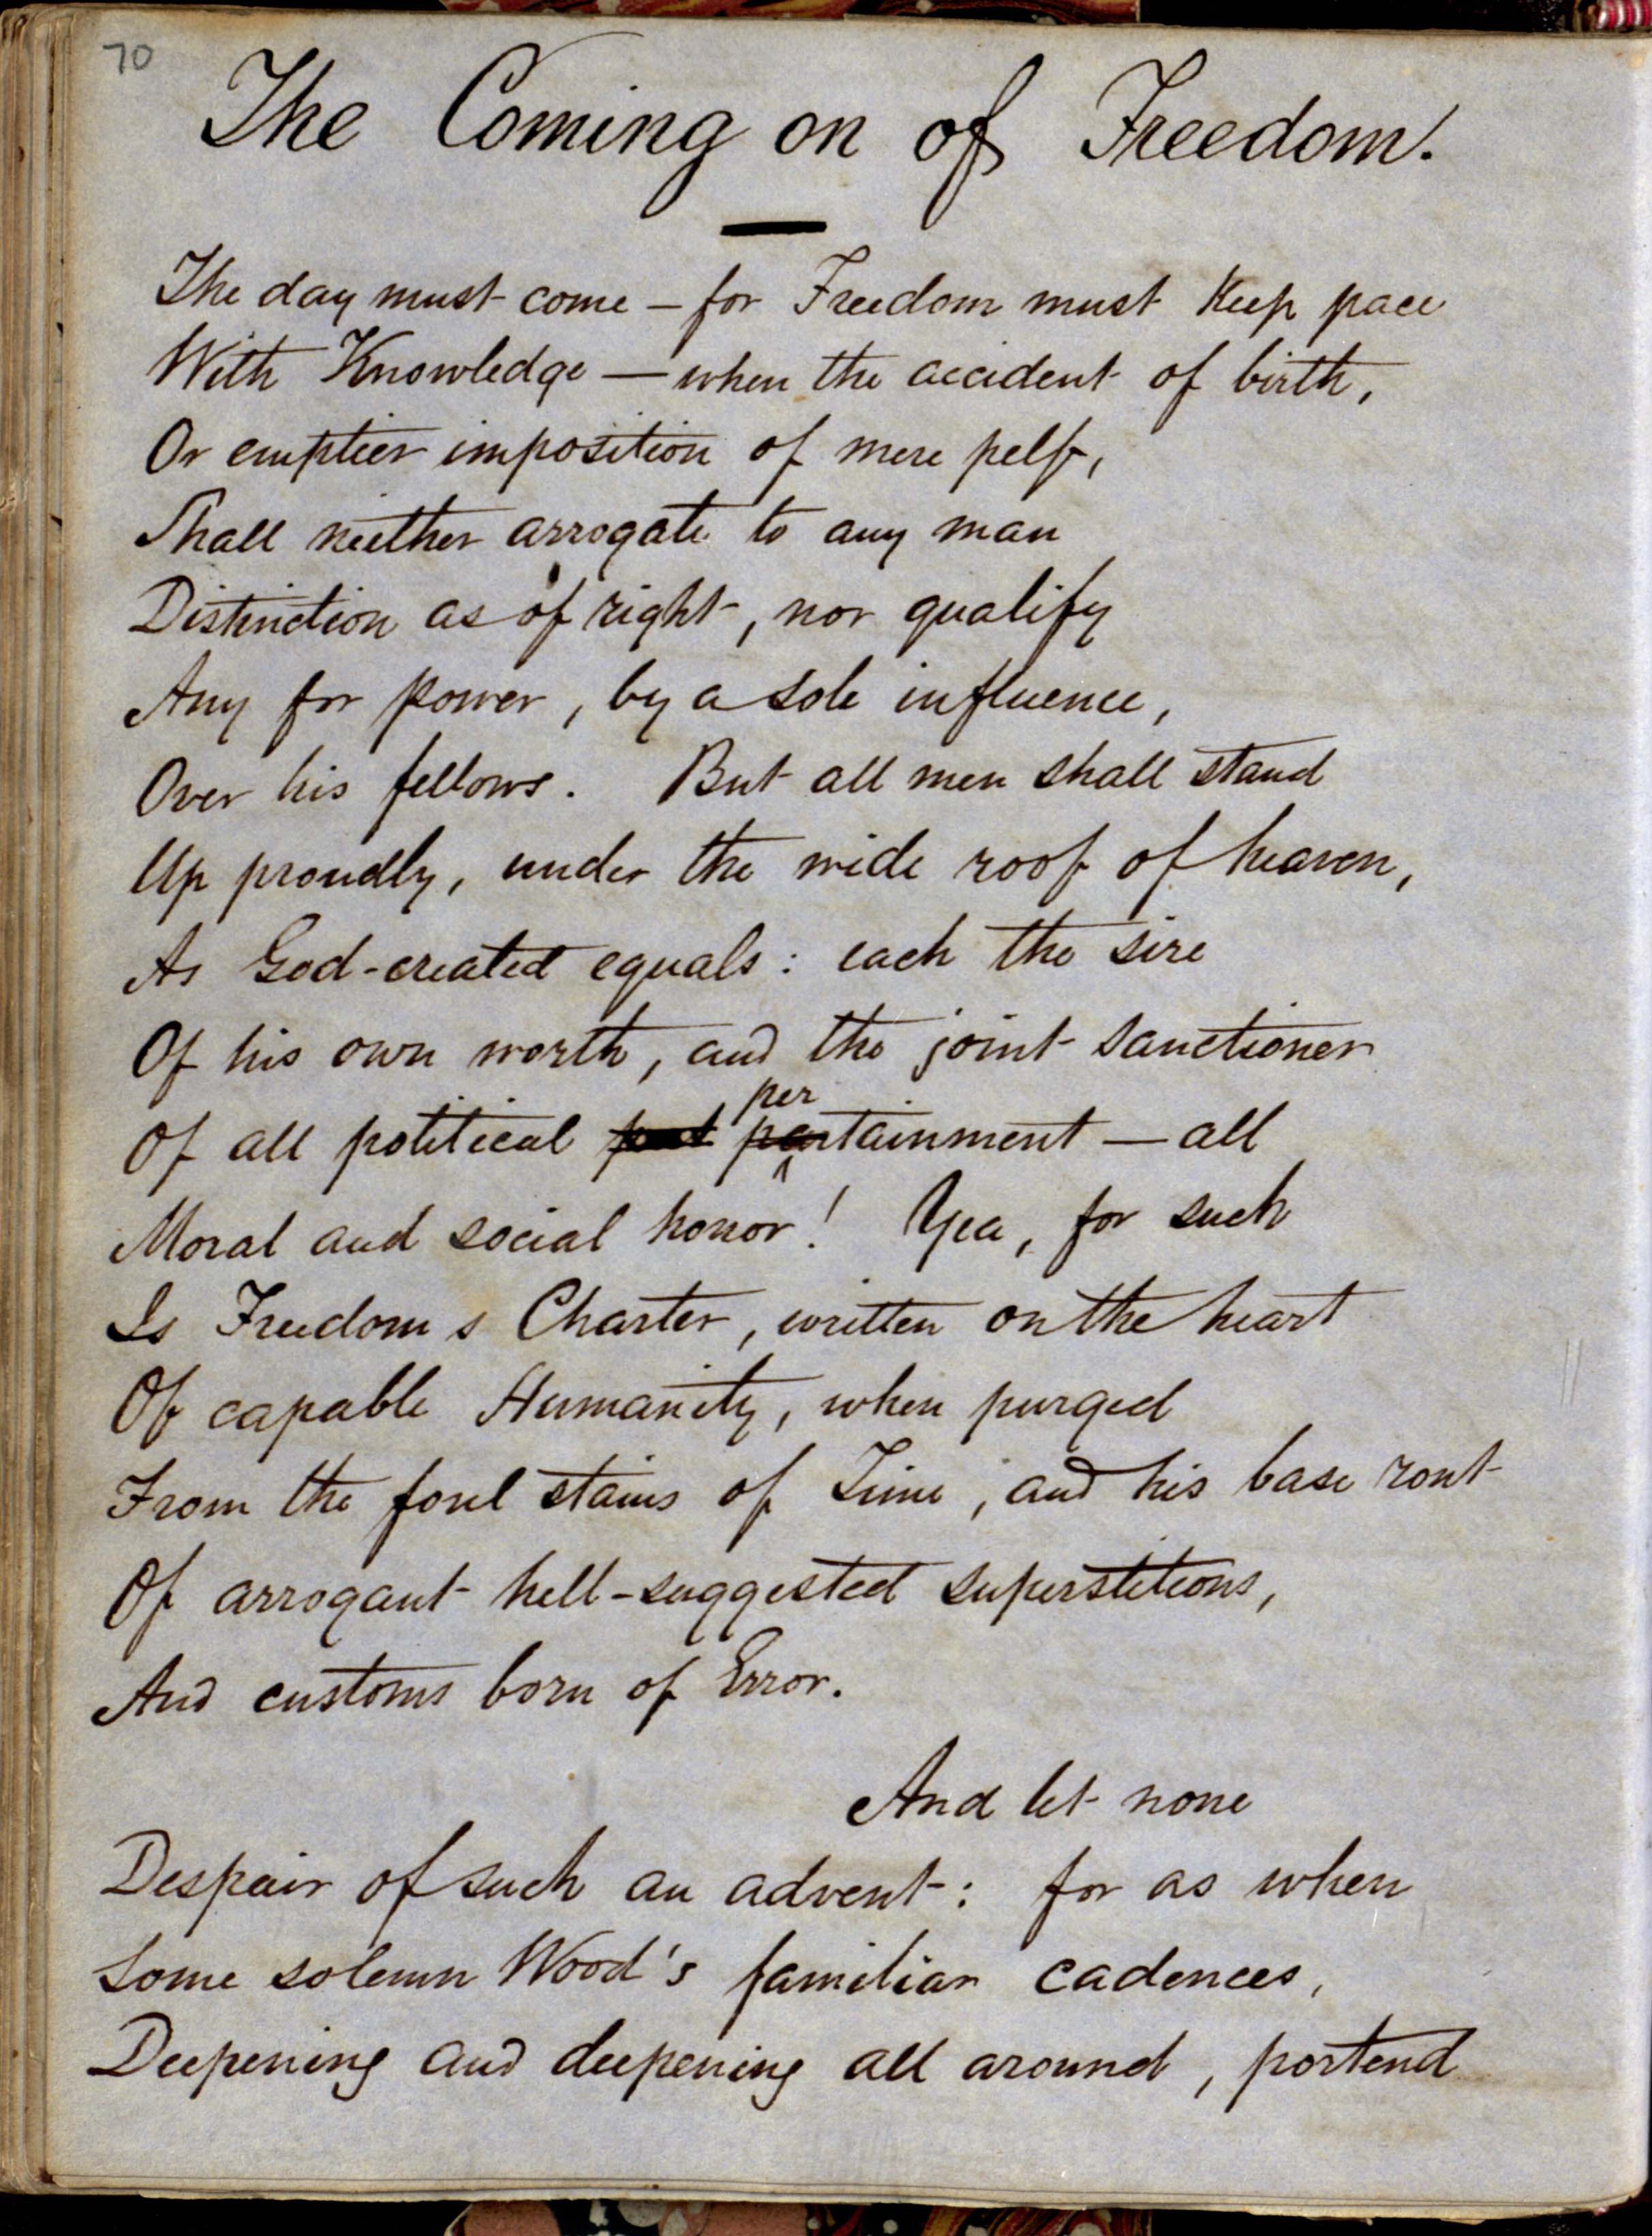 70
The Coming on of Freedom.
The day must come – for Freedom must keep pace
With Knowledge – when the accident of birth,
Or emptier imposition of mere pelf,
Shall neither arrogate to any man
Distinction as of right, nor qualify
Any for power, by a sole influence,
Over his fellows. But all men shall stand
Up proudly, under the wide roof of heaven,
As God-created equals: each the sire
Of his own worth, and the joint sanctioner
per
Of all political pertainment – all
Moral and social honor! Yea, for such
Is Freedom s Charter, written on the heart
Of capable Humanity, when purged
From the foul stains of Time, and his base rout
Of arrogant hell-suggested superstitions,
And customs born of Error.
And let none
Despair of such an advent: for as when
Some solemn Wood's familiar cadences,
Deepening and deepening all around, portend